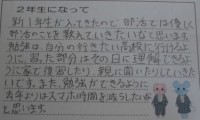 2年生になって
新1年生が入ってきたので、部活では優しく
部活のことを教えていきたいなと思います。
勉強は、自分の行きたい高校に行けるよう
に、習った部分はその日に理解できるよ
うに家で復習したり、親に聞いたりしていきた
いです。また、勉強ができるように
去年よりはスマホ時間を減らしたいな
と思います。